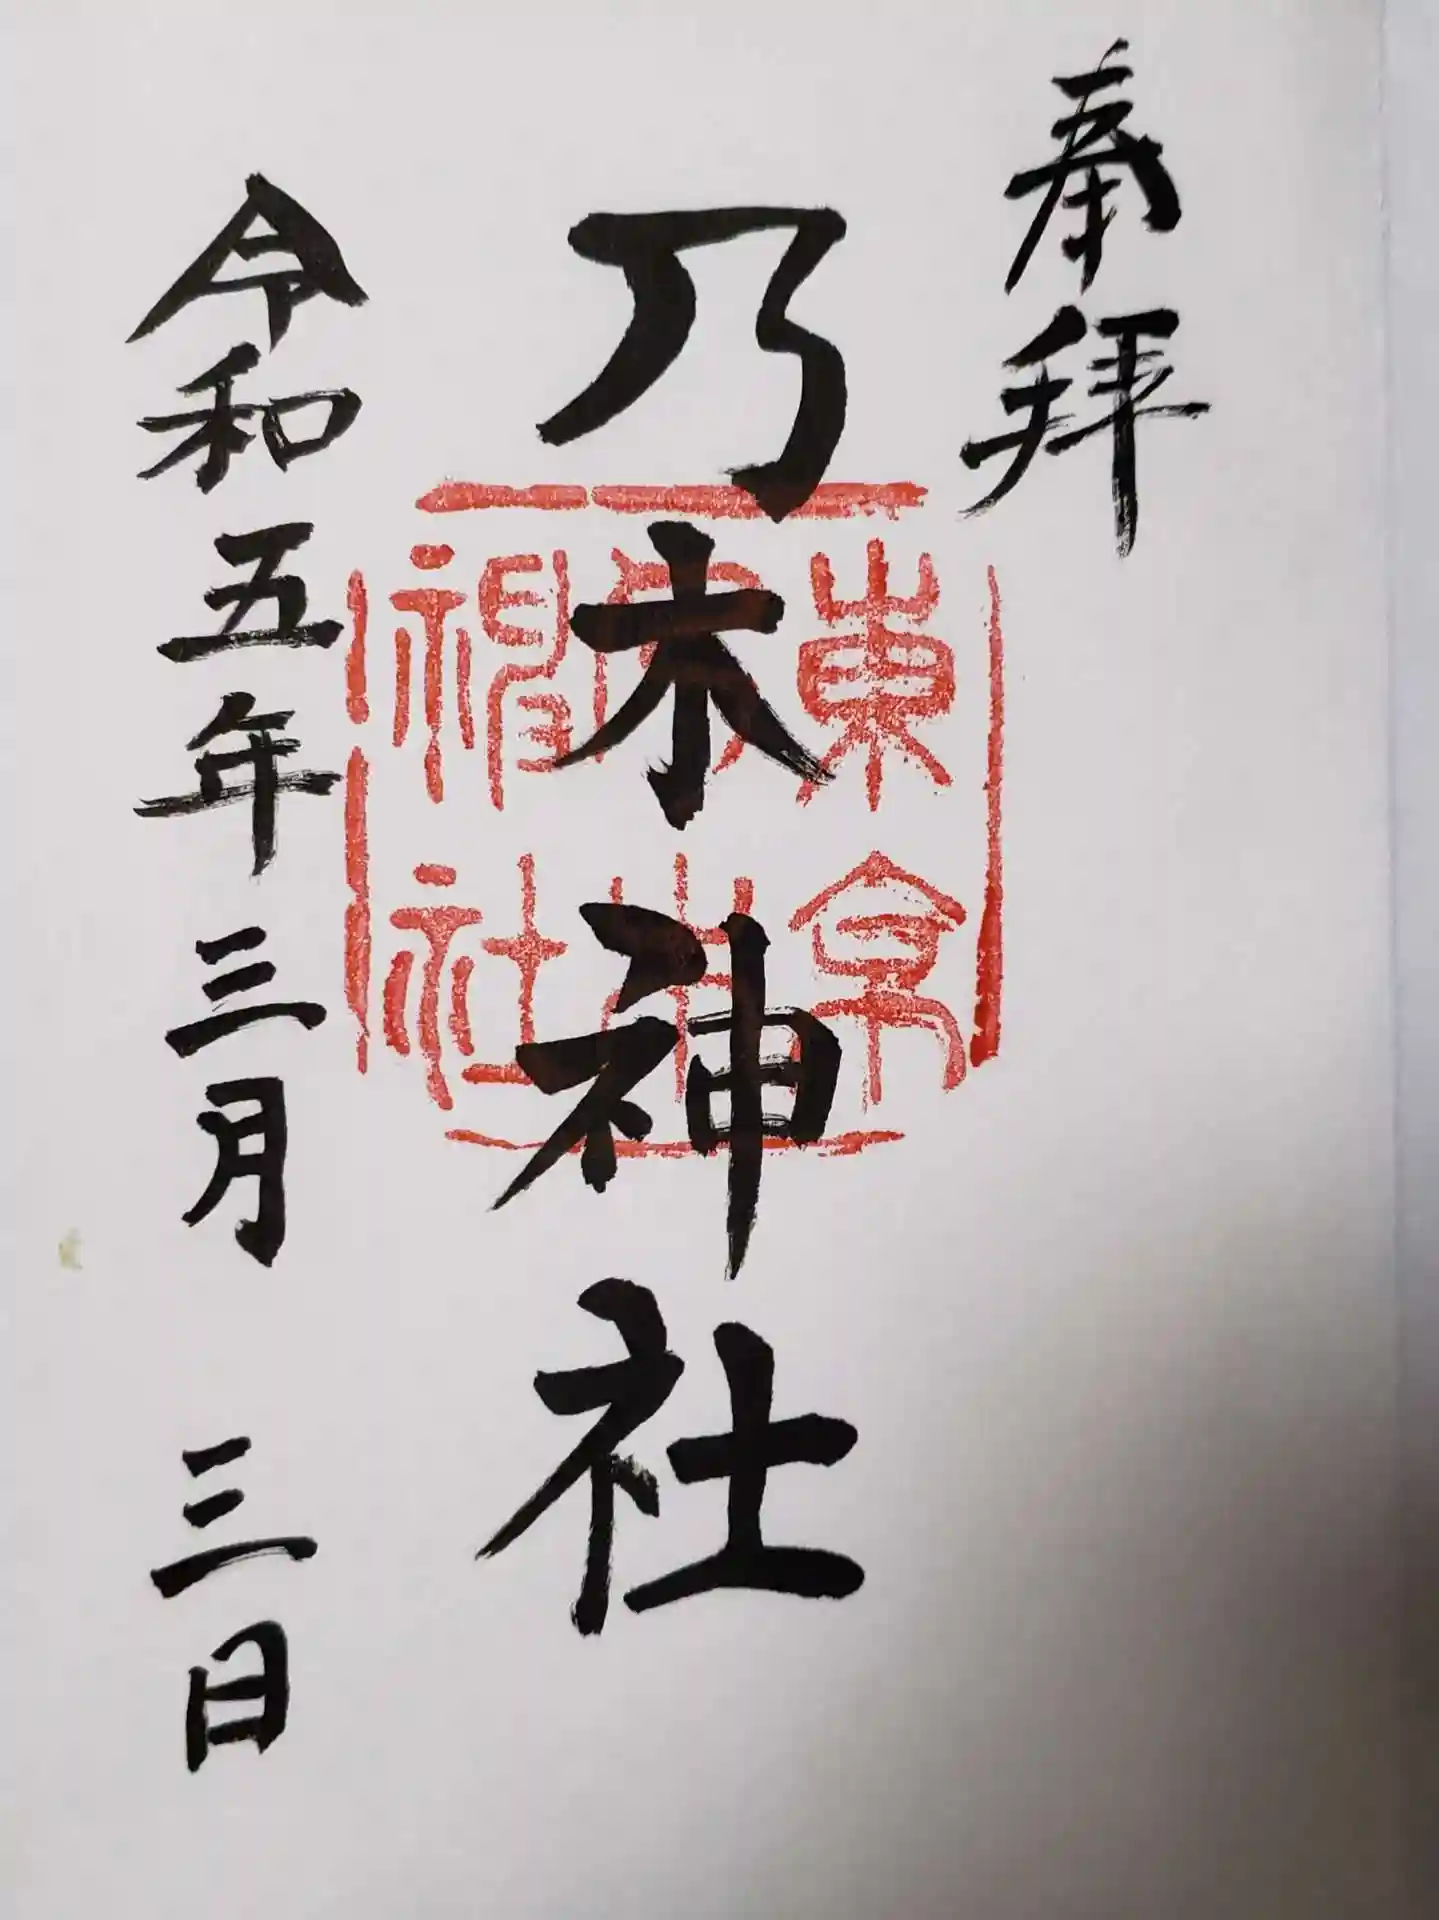 奉拝
乃木神社
東京
乃木
神社
令和五年三月 三日